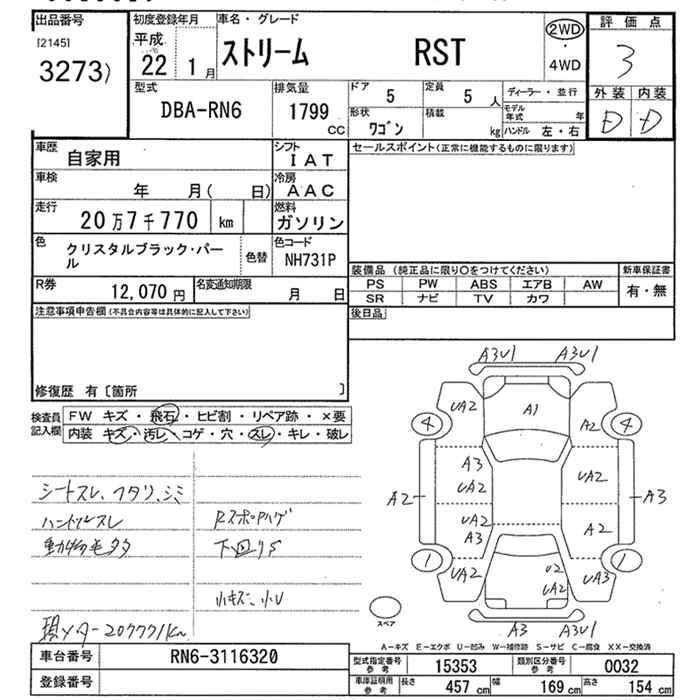 出品番号 初度登録年月 車名・グレード 評価点
[2145]
3273)
平成 22 1月 ストリーム RST 2WD ・ 4WD 3
型式 排気量 ドア 5 定員 5人 ディーラー・並行 外装 内装
DBA-RN6 1799 cc 形状 ワゴン 積載 kg モデル年式 年 D D
ハンドル 左・右
車歴 自家用 シフト IAT セールスポイント(正常に機能するものに限ります)
車検 年 月( 日) 冷房 AAC
走行 20万7千770 km 燃料 ガソリン
色 クリスタルブラック・パール 色替 色コード NH731P
装備品 (純正品に限り○をつけてください) 新車保証書
PS PW ABS エアB AW 有・無
SR ナビ TV カワ
R券 12,070円 名変通知期限 月 日
後日品
注意事項申告欄(不具合内容等は具体的に記入して下さい)
修復歴 有〔箇所 〕
検査員記入欄 FW キズ・飛石・ヒビ割・リペア跡・×要
内装 キズ・汚レ・コゲ・穴・スレ・キレ・破レ
シートスレ、ヘタリ、シミ
ハンドルスレ
動物毛多
Rスポ
下回りS
小キズ、小U
現メーター207771km
A3U1 A3U1
UA2 A1 A2
4 4
A3 UA2
UA2
A2 A3
UA2 A2
A3
1 1
UA2 U2 UA3
UA2
スペア
A3 A3U1
A-キズ E-エクボ U-凹み W-補修跡 S-サビ C-腐食 XX-交換済
車台番号 RN6-3116320
登録番号
型式指定番号 参考 15353 類別区分番号 参考 0032
車庫証明用 参考 長さ 457 cm 幅 169 cm 高さ 154 cm